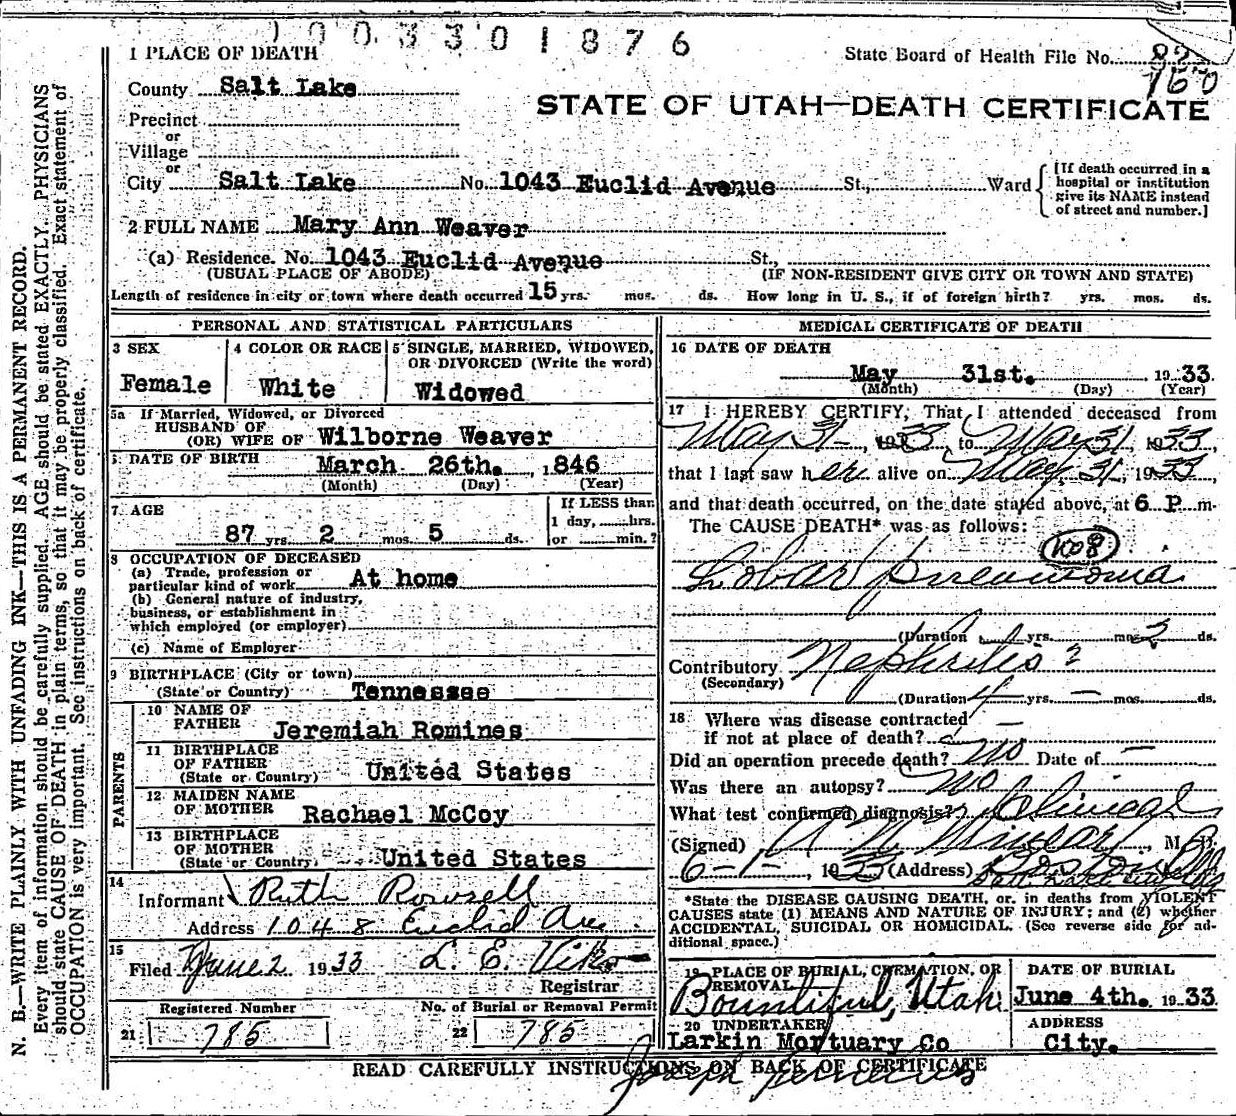 1003301876
1 PLACE OF DEATH
State Board of Health File No.
County Salt Lake
160
STATE OF UTAH—DEATH CERTIFICATE
Precinct
or
Village
or
City Salt Lake No. 1043 Euclid Avenue St., Ward
[If death occurred in a
hospital or institution
give its NAME instead
of street and number.]
2 FULL NAME Mary Ann Weaver
(a) Residence. No. 1043 Euclid Avenue St.,
(USUAL PLACE OF ABODE) (IF NON-RESIDENT GIVE CITY OR TOWN AND STATE)
Length of residence in city or town where death occurred 15 yrs. mos. ds. How long in U. S., if of foreign birth? yrs. mos. ds.
PERSONAL AND STATISTICAL PARTICULARS
3 SEX
Female
4 COLOR OR RACE
White
5 SINGLE, MARRIED, WIDOWED,
OR DIVORCED (Write the word)
Widowed
5a If Married, Widowed, or Divorced
HUSBAND OF
(OR) WIFE OF Wilborne Weaver
6 DATE OF BIRTH March 26th. 1846
(Month) (Day) (Year)
7 AGE
87 yrs. 2 mos. 5 ds.
If LESS than
1 day, hrs.
or min.?
8 OCCUPATION OF DECEASED
(a) Trade, profession or
particular kind of work At home
(b) General nature of industry,
business, or establishment in
which employed (or employer)
(c) Name of Employer
9 BIRTHPLACE (City or town)
(State or Country) Tennessee
PARENTS
10 NAME OF
FATHER Jeremiah Romines
11 BIRTHPLACE
OF FATHER
(State or Country) United States
12 MAIDEN NAME
OF MOTHER Rachael McCoy
13 BIRTHPLACE
OF MOTHER
(State or Country) United States
14
Informant Ruth Rowsell
Address 1048 Euclid Ave
15
Filed June 2 1933 L. E. Viko
Registrar
Registered Number
21 785
No. of Burial or Removal Permit
22 785
MEDICAL CERTIFICATE OF DEATH
16 DATE OF DEATH
May 31st. 1933.
(Month) (Day) (Year)
17 I HEREBY CERTIFY, That I attended deceased from
May 31-, 1933 to May 31, 1933,
that I last saw her alive on May, 31, 1933
and that death occurred, on the date stated above, at 6 P. m.
The CAUSE DEATH* was as follows:
108
Lobar pneumonia
(Duration yrs. mos. 2 ds.
Contributory Nephritis ?
(Secondary)
(Duration 4 yrs. — mos. ds.
18 Where was disease contracted
if not at place of death? —
Did an operation precede death? No Date of —
Was there an autopsy? No
What test confirmed diagnosis? Clinical
(Signed) M. D.
6-1-, 1933 (Address) Boston Bldg
Salt Lake City
*State the DISEASE CAUSING DEATH, or, in deaths from VIOLENT
CAUSES state (1) MEANS AND NATURE OF INJURY; and (2) whether
ACCIDENTAL, SUICIDAL OR HOMICIDAL. (See reverse side for ad-
ditional space.)
19 PLACE OF BURIAL, CREMATION, OR
REMOVAL
Bountiful, Utah
DATE OF BURIAL
June 4th. 1933
20 UNDERTAKER
Larkin Mortuary Co
ADDRESS
City.
READ CAREFULLY INSTRUCTIONS ON BACK OF CERTIFICATE
Joseph
N. B.—WRITE PLAINLY WITH UNFADING INK—THIS IS A PERMANENT RECORD.
Every item of information should be carefully supplied. AGE should be stated EXACTLY. PHYSICIANS
should state CAUSE OF DEATH in plain terms, so that it may be properly classified. Exact statement of
OCCUPATION is very important. See instructions on back of certificate.